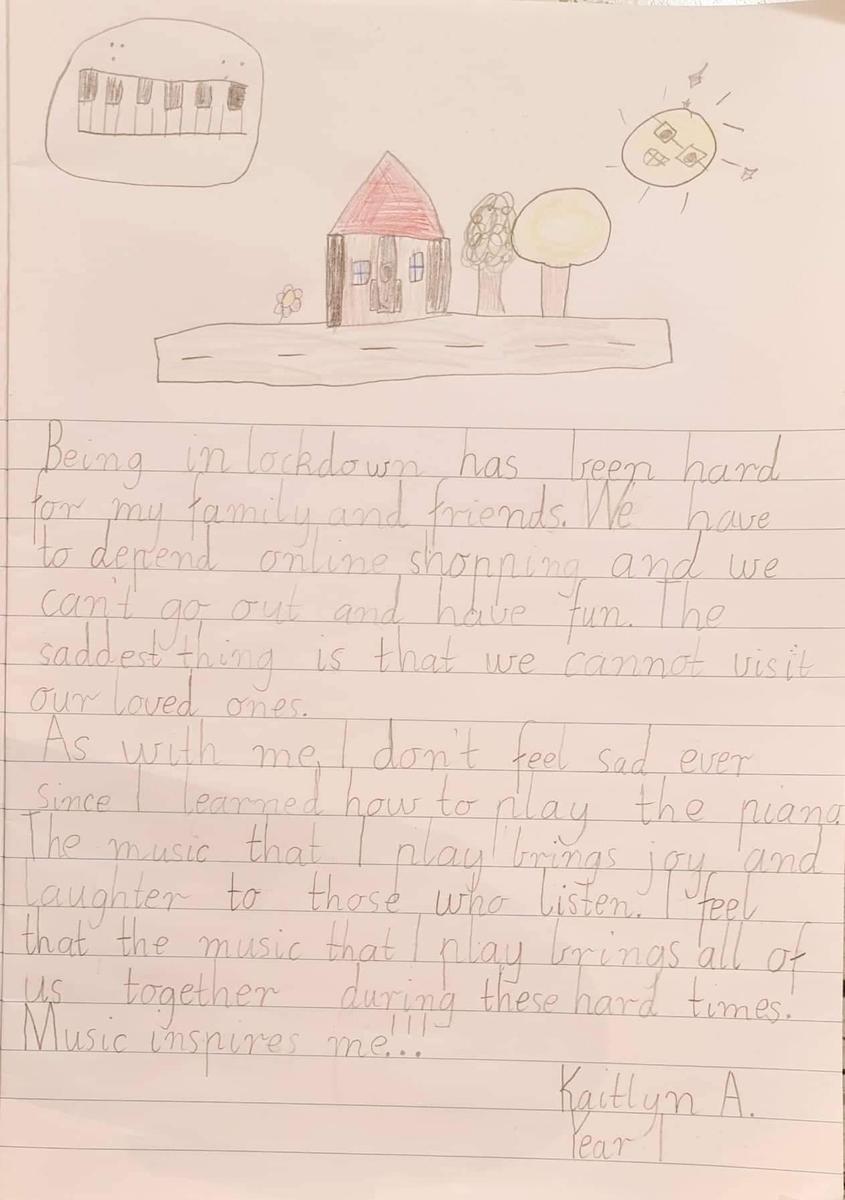 Being in lockdown has been hard
for my family and friends. We have
to depend online shopping and we
can't go out and have fun. The
saddest thing is that we cannot visit
our loved ones.
As with me, I don't feel sad ever
since I learned how to play the piano.
The music that I play brings joy and
laughter to those who listen. I feel
that the music that I play brings all of
us together during these hard times.
Music inspires me!!!
Kaitlyn A.
Year 1